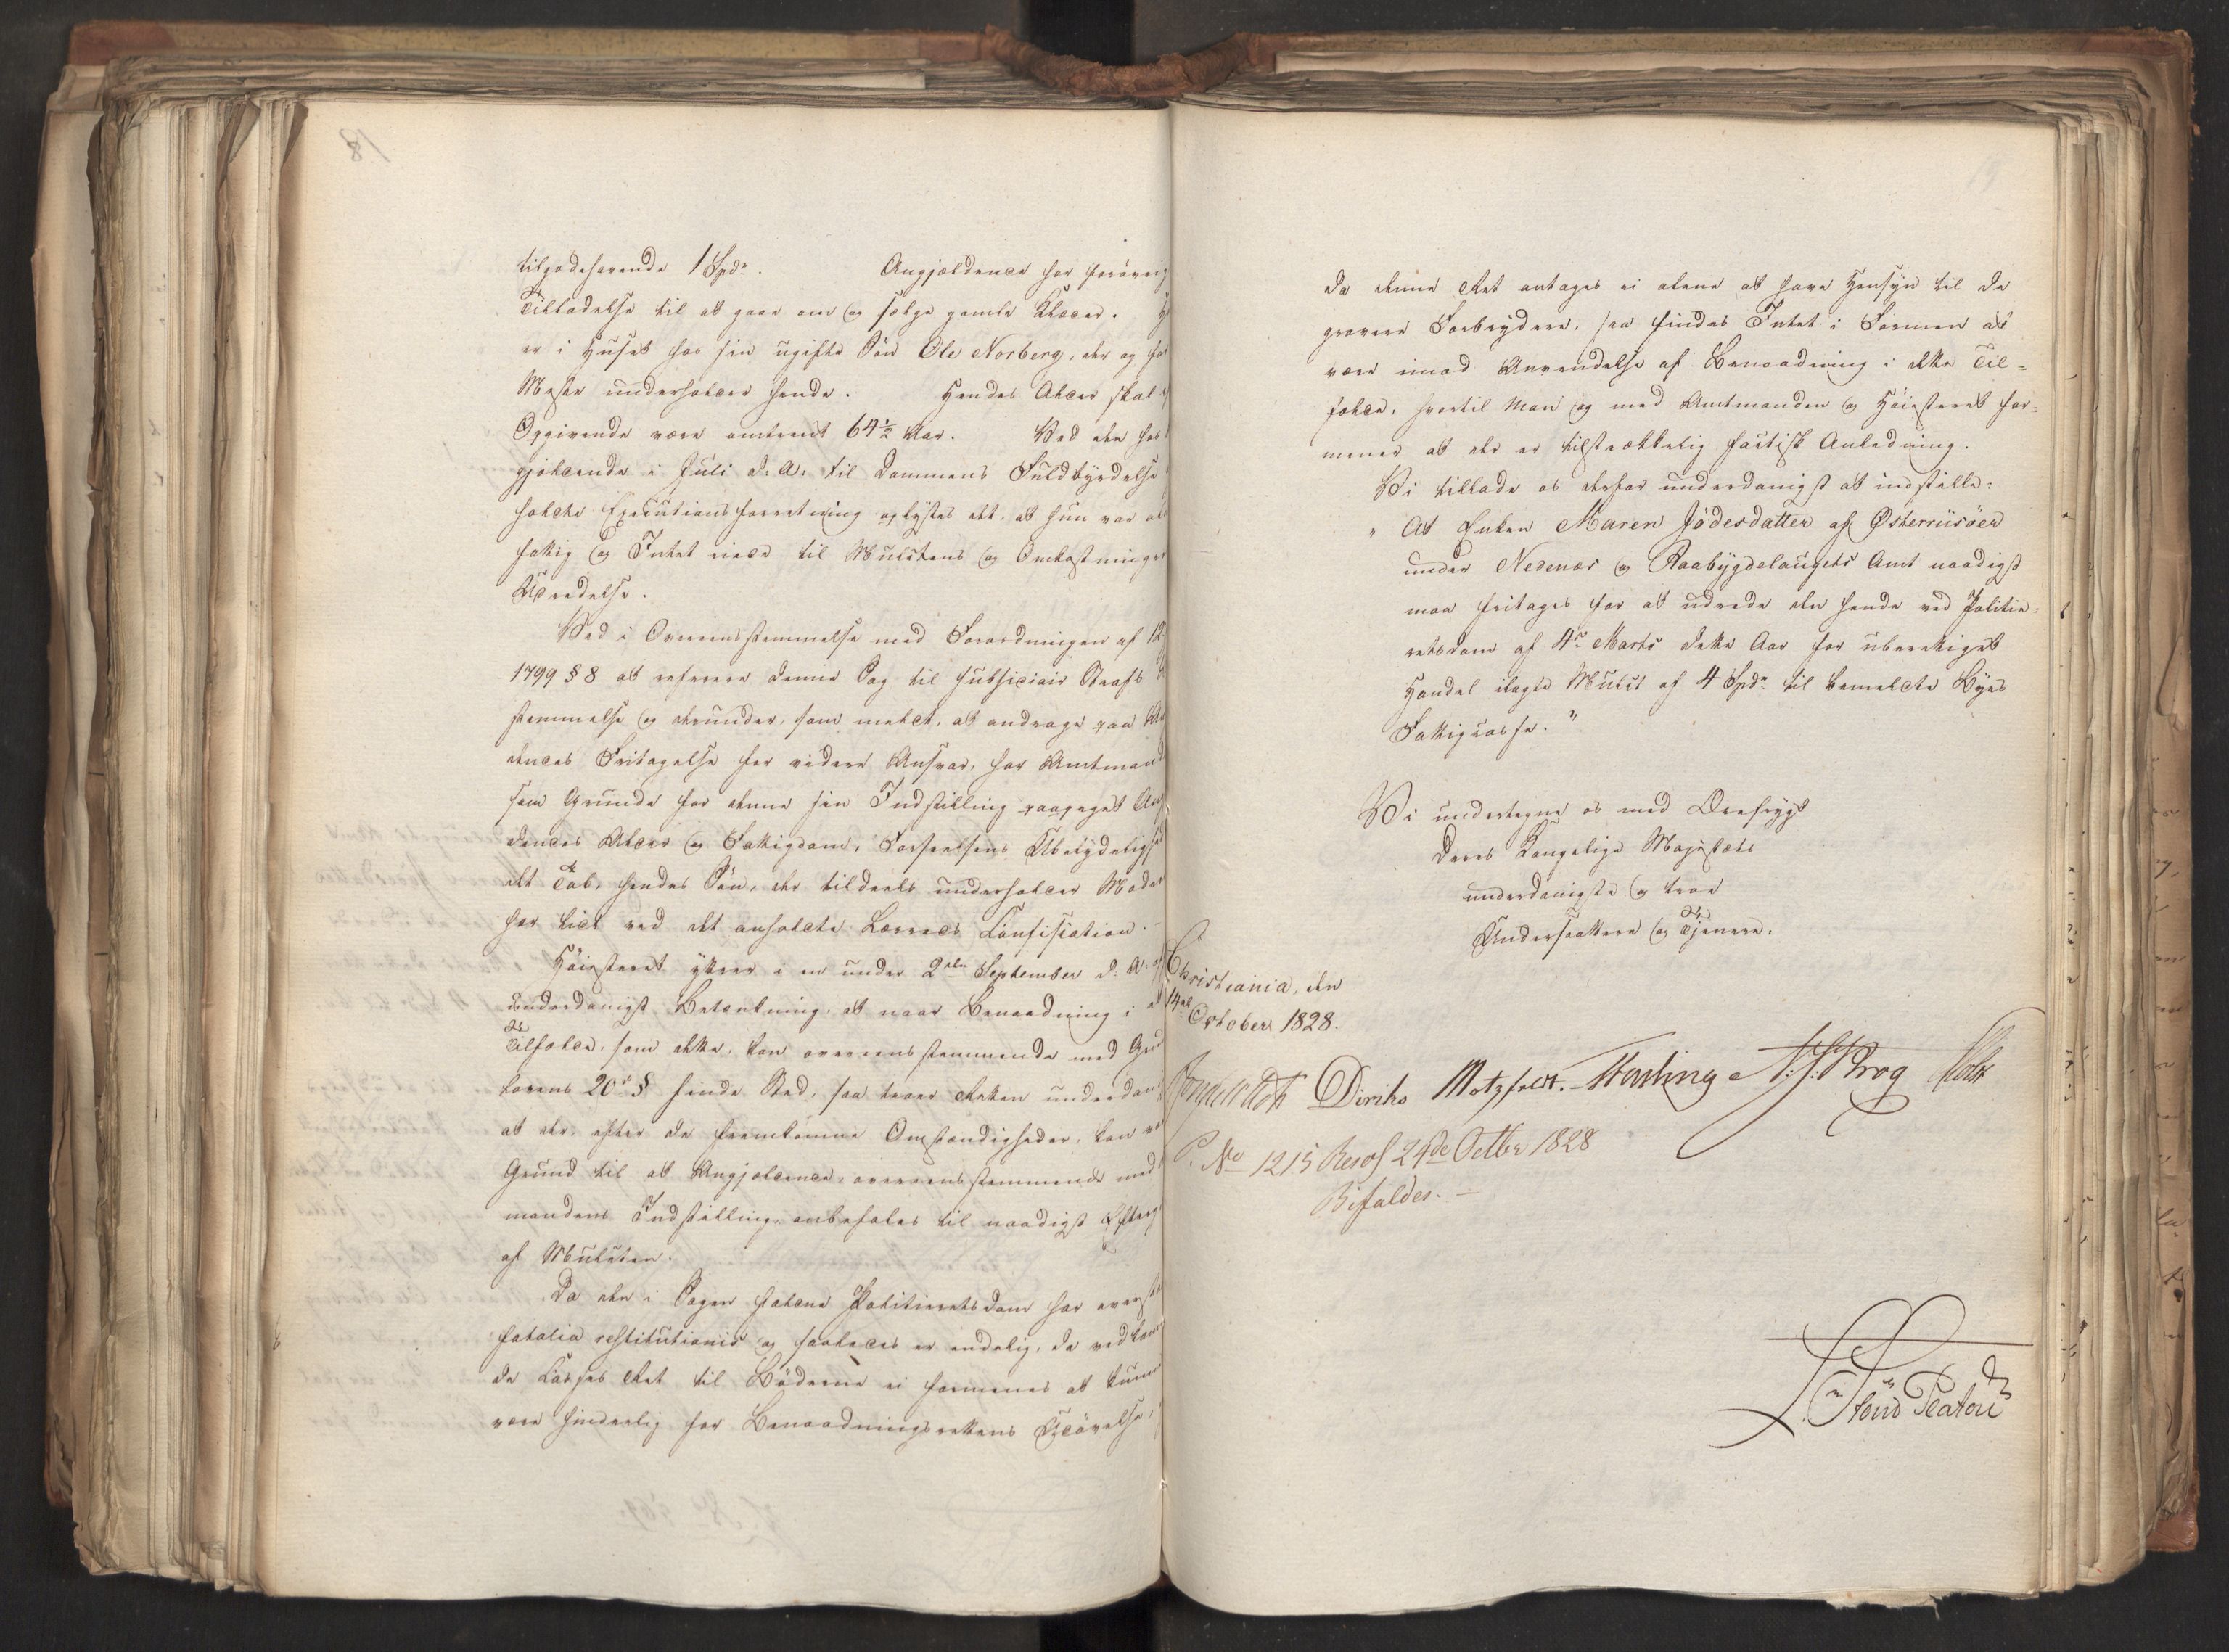 tilgodehavende 1 Spd. Angjældende har forøvrig
Tilladelse til at gaae om og sælge gamle Klæder.
er i Huset hos sin ugifte Søn Ole Norberg, der og for
Meste underholder hende. Hendes Alder skal
Opgivende være omtrent 64½ Aar. Ved den hos
gjældende i Juli d. A. til Dommens Fuldbyrdelse
holdte Executionsforretning oplystes det, at hun var
fattig og Intet eiede til Mulctens og Omkostninger
Udredelse.
Ved i Overeensstemmelse med Forordningen af 12
1799 § 8 at referere denne Sag til subsidiair Straffs
stemmelse og derunder, som meldt, at andrage paa
dendes Fritagelse for videre Ansvar, har Amtmand
som Grunde for denne sin Indstilling paapeget Ang
dendes Alder og Fattigdom, Forseelsens Ubetydelighed
det Tab, hendes Søn, der tildeels underholder Moder
har lidt ved det anholdte Lærreds Confiscation.
Høiesteret yttrer i en under 2den September d. A.
underdanigst Betænkning, at naar Benaadning i
Tilfælde, som dette, kan overeensstemmende med Grund
lovens 20de § finde Sted, saa troer Retten underdan
at der, efter de fremkomne Omstændigheder, kan
Grund til at Angjældende, overeensstemmende med
mandens Indstilling, anbefales til naadigst Efterg
af Mulcten.
Da den i Sagen faldne Politieretsdom har overs
fatalia restitutionis og saaledes er endelig, da vedkom
de Casses Ret til Bøderne ei formenes at kunne
være hinderlig for Benaadningsrettens Udøvelse,
da denne Ret antages ei alene at have Hensyn til de
grovere Forbrydere, saa findes Intet i Formen at
være imod Anvendelse af Benaadning i dette Til-
fælde, hvortil man og med Amtmanden og Høiesteret for-
mener at der er tilstrækkelig factisk Anledning.
Vi tillade os derfor underdanigst at indstille:
" At Enken Maren Jödesdatter af Østerriisöer
under Nedenæs og Raabygdelaugets Amt naadigst
maa fritages for at udrede den hende ved Politie-
retsdom af 4de Marts dette Aar for uberettiget
Handel ilagte Mulct af 4 Spd. til bemeldte Byes
Fattigcasse."
Vi undertegne os med Ærefrygt
Deres Kongelige Majestæts
underdanigste og troe
Undersaattere og Tjenere.
Christiania, den
14de October 1828.
Diriks Motzfeldt. N. J. Krog Holst
P. No 1215 Resol 24de Octbr 1828
Bifaldes. –